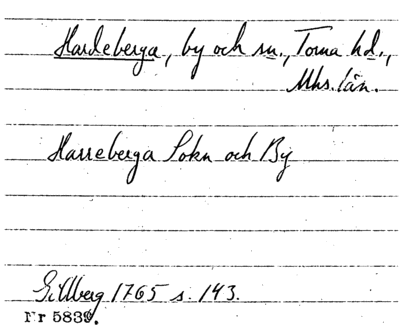 Hardeberga, by och sn., Torna hd.,
Mhs. län.
Harreberga Sokn och By
Gillberg 1765 s. 143.
Nr 5839.